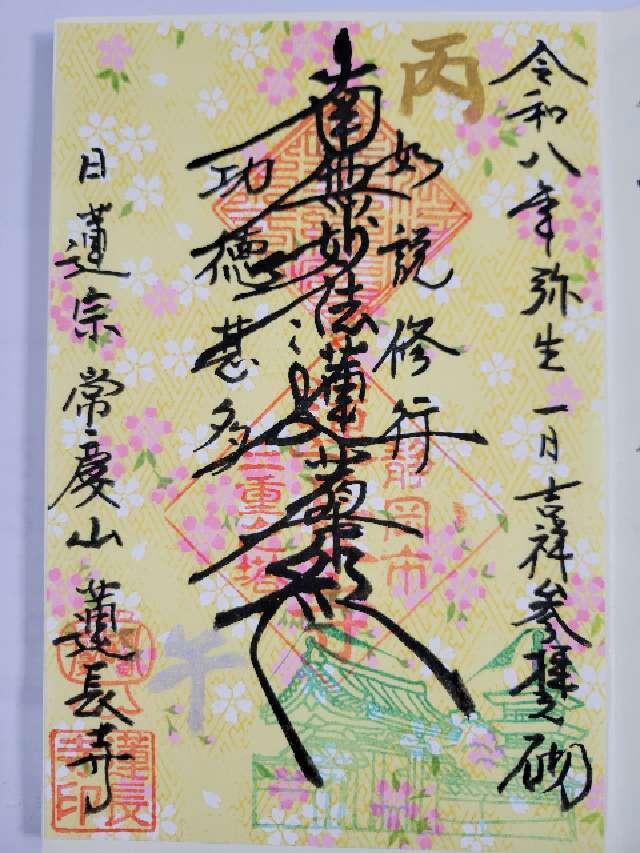 令和八年弥生一日吉祥参拝之砌
丙
如説修行
南無妙法蓮華経
功徳甚多
日蓮宗常慶山蓮長寺
午
静岡市
三重之塔
蓮長寺印